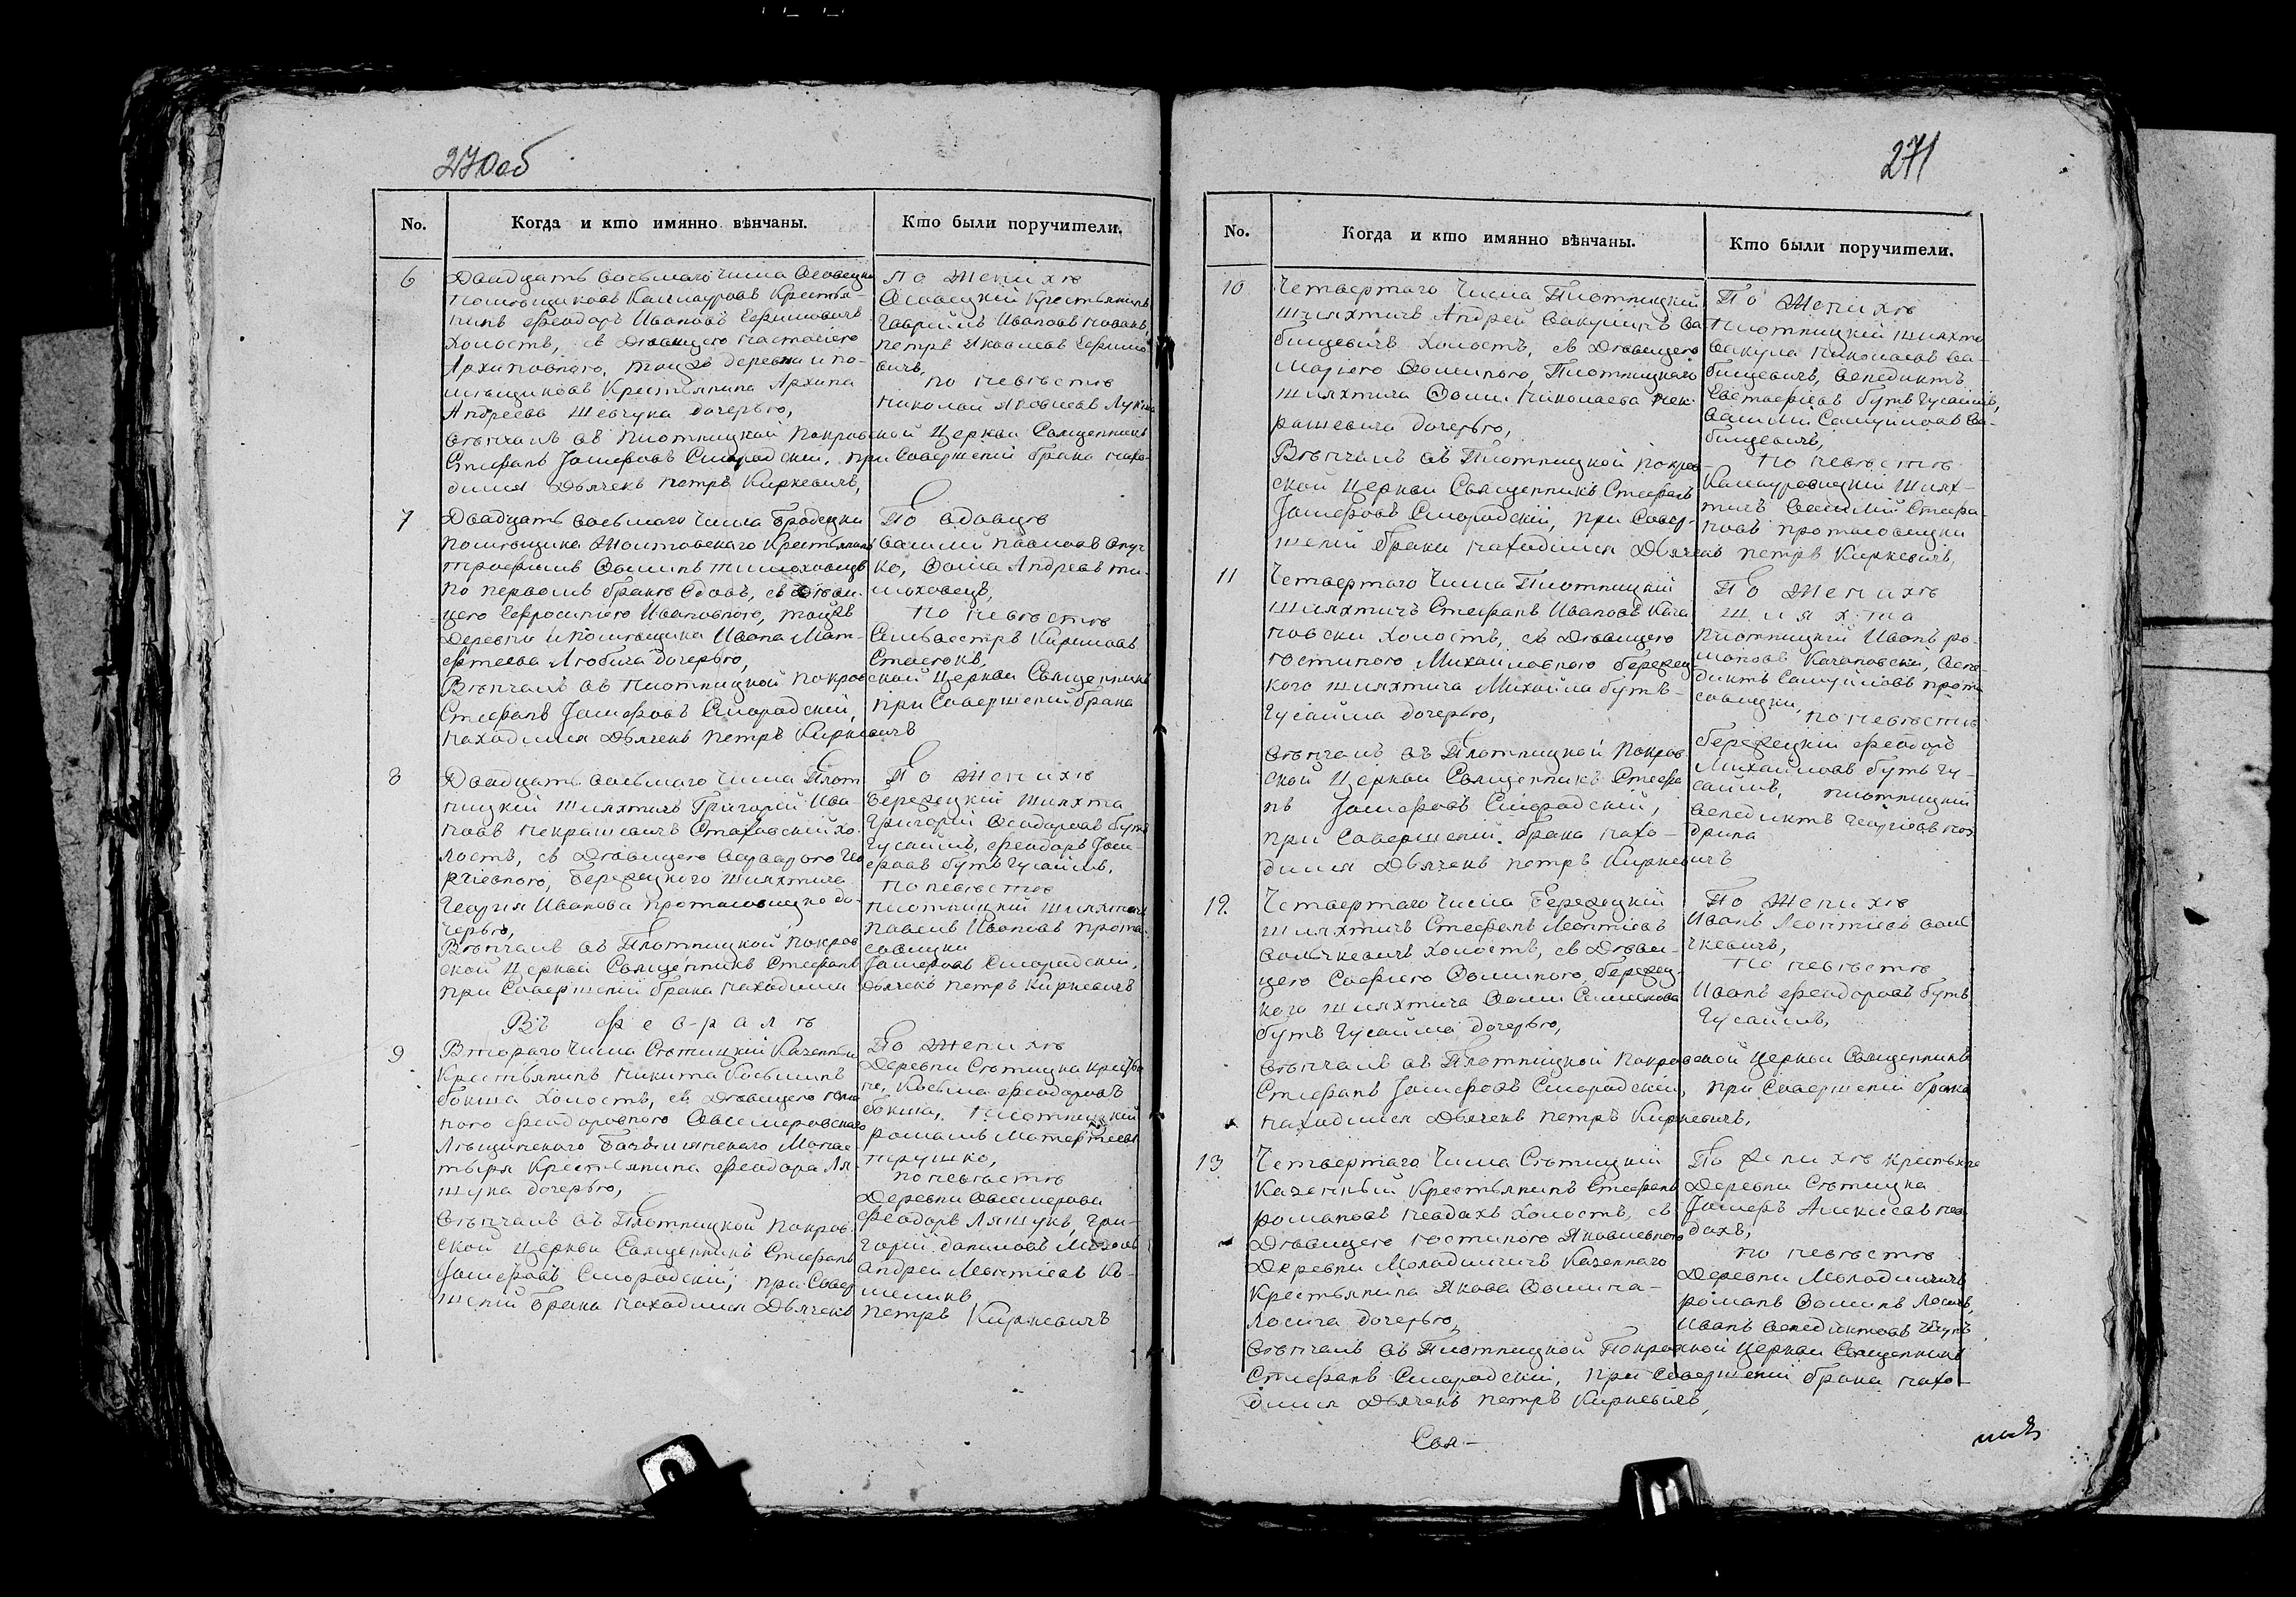 270об
No.
Когда и кто имянно вѣнчаны.
Кто были поручители.
6
Двадцать восьмаго числа Осовецки
помѣщиковъ Крестья-
нинъ Феодоръ Ивановъ Ефимовичъ
холостъ, съ Дѣвицею Настасіею
Архиповною, тоижъ деревни и по-
мѣщиковъ Крестянина Архипа
Андреева Шевчука дочерью,
Вѣнчалъ въ Плотницкой Покровской Церкви Священникъ
Стефанъ Іосифовъ Смородскій, при Совершеніи брака нахо-
дился Дьячекъ Петръ Киркевичъ,
По Женихѣ
Осовецкій Крестьянинъ
Гавріилъ Ивановъ
Петръ Яковлевъ Ефимо-
вичъ,
По невѣстѣ
Николай Яковлевъ
7
Двадцать восьмаго числа Бродецки
помѣщика Крестьянинъ
Трофимъ Ѳоминъ Тимоховецъ
по первомъ бракѣ вдовъ, съ дѣви-
цею Ефросиніею Ивановною, тоижъ
Деревни и помѣщика Ивана Мат-
фтеева Любича дочерью,
Вѣнчалъ въ Плотницкой Покровской Церкви Священникъ
Стефанъ Іосифовъ Смородскій, при Совершеніи брака
находился Дьячекъ Петръ Киркевичъ
По вдовцѣ
Василій Павловъ
ко, Ѳома Андреевъ Ти-
моховецъ,
По невѣстѣ
Сильвестръ Кириловъ
8
Двадцать восьмаго числа Плот-
ницкій шляхтичъ Григорій Ива-
новъ Некрашевичъ Стаховскій хо-
лостъ, съ Дѣвицею Варварою Гео-
ргіевною, Бережецкаго шляхтича
Георгія Иванова Протасовицко до-
черью,
Вѣнчалъ въ Плотницкой Покров-
ской Церкви Священникъ Стефанъ Іосифовъ Смородскій,
при Совершеніи брака находился Дьячекъ Петръ Киркевичъ
По Женихѣ
Бережецкій шляхта
Григорій Феодоровъ Бутъ
Гусаимъ, Феодоръ Іоси-
фовъ Бутъ Гусаимъ,
По невѣстѣ
Плотницкій шляхтичъ
Павелъ Ивановъ Прота-
совицки
Въ Февралѣ
9
Втораго числа Сѣтицкій Казенный
Крестьянинъ Никита Косьминъ
Бокша холостъ, съ Дѣвицею
Феодоровною
Лѣщинскаго Монас-
тыря Крестьянина Феодора Ля-
шука дочерью,
Вѣнчалъ въ Плотницкой Покров-
ской Церкви Священникъ Стефанъ
Іосифовъ Смородскій, при Совер-
шеніи брака находился Дьячекъ Петръ Киркевичъ
По Женихѣ
Деревни Сѣтицка Крестья-
не, Косьма Феодоровъ
Бокша, Плотницкій
Романъ Матфтеевъ
По невѣстѣ
Деревни
Феодоръ Ляшукъ, Гри-
горій Даниловъ
Андрей Леонтіевъ
271
No.
Когда и кто имянно вѣнчаны.
Кто были поручители.
10
Четвертаго числа Плотницкій
шляхтичъ Андрей Вакулинъ Ва-
бищевичъ холостъ, съ Дѣвицею
Маріею Ѳоминою, Плотницкаго
шляхтича Ѳомы Николаева Нек-
рашевича дочерью,
Вѣнчалъ въ Плотницкой Покров-
ской Церкви Священникъ Стефанъ
Іосифовъ Смородскій, при Совер-
шеніи брака находился Дьячекъ Петръ Киркевичъ,
По Женихѣ
Плотницкій шляхта
Вакула Николаевъ Ва-
бищевичъ, Венедиктъ
Евстафіевъ Бутъ Гусаимъ,
Василій Самуиловъ Ва-
бищевичъ,
По невѣстѣ
шлях-
тичъ Василій Стефа-
новъ Протасовицки
11
Четвертаго числа Плотницкій
шляхтичъ Стефанъ Ивановъ Кача-
новски холостъ, съ Дѣвицею
Юстиною Михаиловною Бережец-
каго шляхтича Михаила Бутъ-
Гусаима дочерью,
Вѣнчалъ въ Плотницкой Покров-
ской Церкви Священникъ Стефа-
нъ Іосифовъ Смородскій,
при Совершеніи брака нахо-
дился Дьячекъ Петръ Киркевичъ
По Женихѣ
шляхта
Плотницкій Иванъ Ро-
мановъ Качановскій, Вене-
диктъ Самуиловъ Прота-
совицки,
По невѣстѣ
Бережецкій Феодоръ
Михаиловъ Бутъ Гу-
саимъ, Плотницкій
Венедиктъ Георгіевъ
12.
Четвертаго числа Бережецкій
шляхтичъ Стефанъ Леонтіевъ
Велечкевичъ холостъ, съ Дѣви-
цею Софіею Ѳоминою, Бережец-
каго шляхтича Ѳомы Симеонова
Бутъ Гусаима дочерью,
Вѣнчалъ въ Плотницкой Покровской Церкви Священникъ
Стефанъ Іосифовъ Смородскій, при Совершеніи брака
находился Дьячекъ Петръ Киркевичъ,
По Женихѣ
Иванъ Леонтіевъ Веле-
чкевичъ,
По невѣстѣ
Иванъ Феодоровъ Бутъ
Гусаимъ,
13
Четвертаго числа Сѣтицкій
Казенный Крестьянинъ Стефанъ
Романовъ Невдахъ холостъ, съ
Дѣвицею Юстиною Яковлевною
Деревни Молодильчичъ Казеннаго
Крестьянина Якова Ѳомина-
Лосича дочерью,
Вѣнчалъ въ Плотницкой Покровской Церкви Священникъ
Стефанъ Смородскій, при Совершеніи брака нахо-
дился Дьячекъ Петръ Киркевичъ,
По Женихѣ Крестьяне
Деревни Сѣтицка
Іосифъ Алексіевъ Нев-
дахъ,
По невѣстѣ
Деревни Молодильчичъ
Романъ Ѳоминъ Лосичъ,
Иванъ Венедиктовъ
Свя-